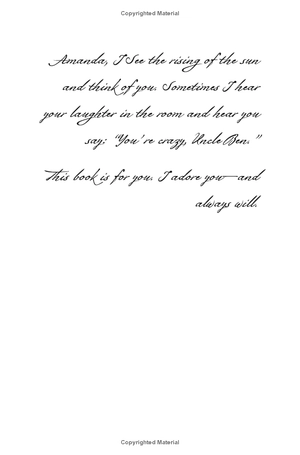 Copyrighted Material
Amanda, I See the rising of the sun
and think of you. Sometimes I hear
your laughter in the room and hear you
say: "You're crazy, Uncle Ben."
This book is for you. I adore you—and
always will.
Copyrighted Material